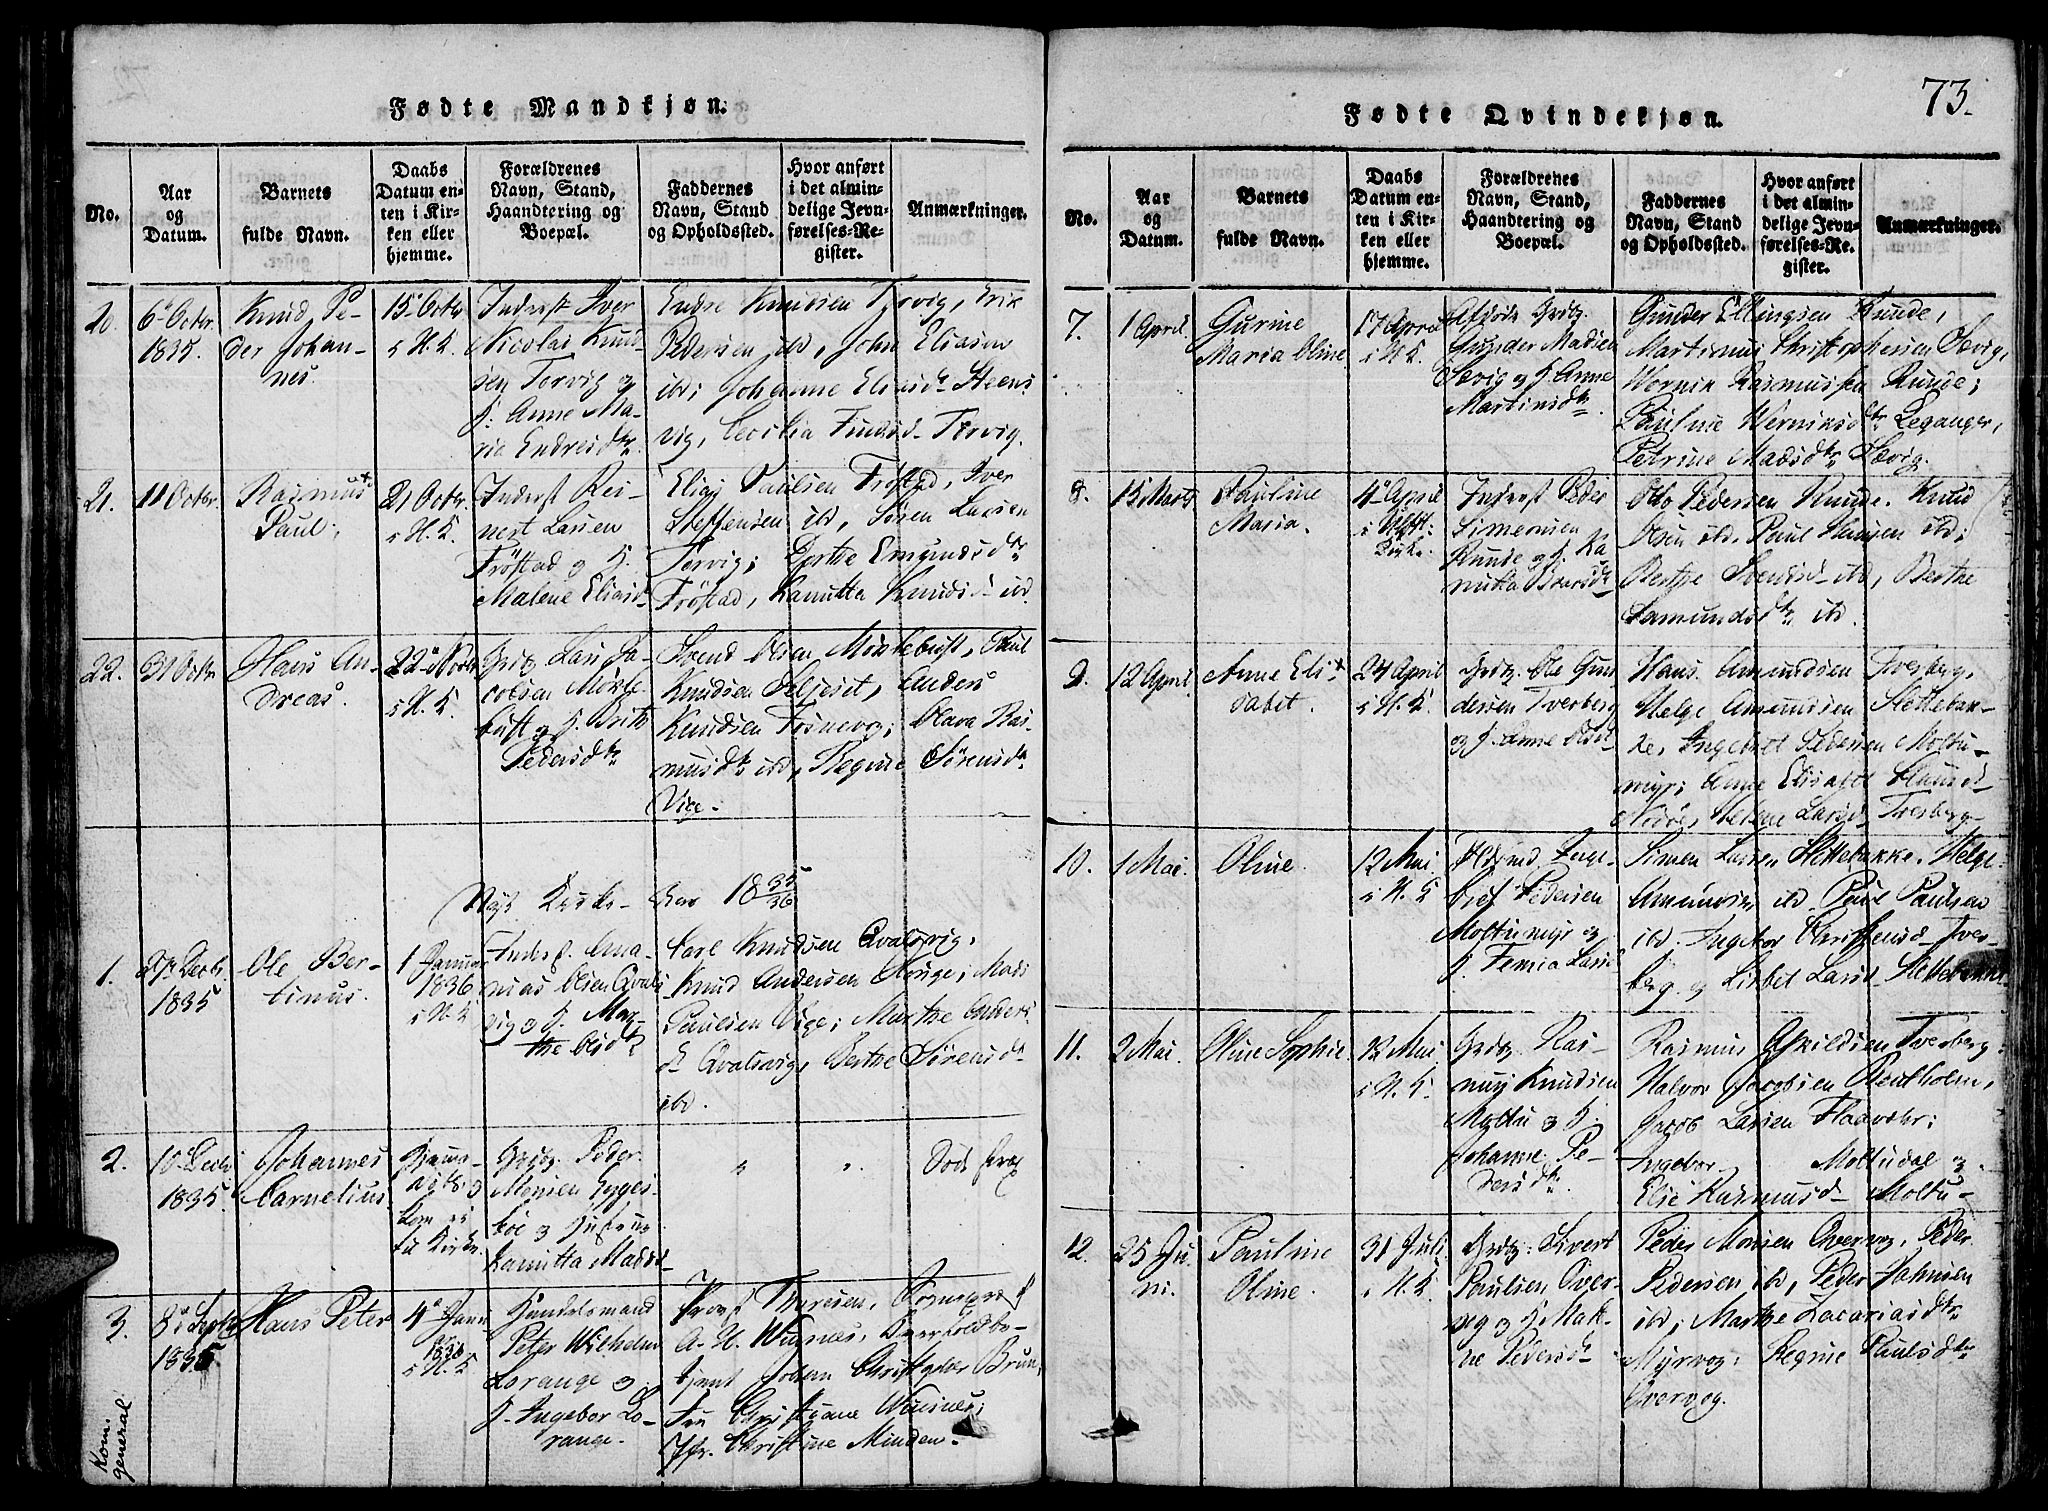 73.
Fødte Mandkjøn.
No.
Aar
og
Datum.
Barnets
fulde Navn.
Daabs
Datum en-
ten i Kir-
ken eller
hjemme.
Forældrenes
Navn, Stand,
Haandtering og
Boepæl.
Faddernes
Navn, Stand
og Opholdssted.
Hvor anført
i det almin-
delige Jevn-
førelses-Re-
gister.
Anmærkninger.
20.
6te Octbr
1835.
Knud Pe-
der Johan-
nes.
15 Octbr
i H. K.
Inderst Iver
Nicolai Knud-
sen Torvig og
H. Anne Ma-
ria Endresdtr.
Endre Knudsen Torvig, Erik
Pedersen ibd, John Eliasen
ibd; Johanne Eliasdtr Steens
vig, Cecilia Knudsd Torvig.
21.
11 Octbr.
Rasmus
Paul.
21 Octbr
i H. K.
Inderst Rei-
nert Larsen
Frøstad og H.
Malene Eliasd
Elias Paulsen Frøstad, Iver
Steffensen ibd, Søren Larsen
Torvig; Berthe Emundsdtr
Frøstad, Kanutta Knudsd ibd.
22.
31 Octbr
Hans An-
dreas.
22 Novbr
i H. K.
Grdbr Lars Ja-
cobsen Mykle-
bust og H. Brite
Pedersdtr
Svend Olsen Myklebust, Paul
Knudsen Skeljeset, Anders
Knudsen Fosnevog; Olava Ras-
musdtr ibd, Regine Sørensdtr
Vige.
Nyt Kirke- Aar 1835/36
1.
27 Decbr.
1835
Ole Ber-
tinus.
1 Januar
1836
i H. K
Inderst Ana-
nias Olsen Qvals
vig og H. Mar-
the Olsdtr
Carl Knudsen Qvalsvig,
Knud Andersen Kouge; Mads
Paulsen Vige; Marthe Anders
dtr Qvalsvig, Berthe Sørensdtr
ibd.
2.
10 Decbr
1835.
Johannes
Cornelius.
Hjemme-
døbt og
kom ei
til Kirke.
Grdbr. Peder
Monsen Eyges-
boe og Hustrue
Kanutta Madsd
" "
Død strax
3.
8 Septbr
1835
Hans Peter
4de Janu
ar
1836
i H. K
Handelsmand
Peter Wilhelm
Lorange og
H. Ingebor Lo-
range.
Provst Thoresen, Sognepræst
A. H. Wugnæs, Overholdbe-
tjent Johan Christopher Brun,
Fru Christiane Wugnæs,
Jfr. Christine Minden.
Kom.
general.
Fødte Qvindekjøn.
No.
Aar
og
Datum.
Barnets
fulde Navn.
Daabs
Datum en-
ten i Kir-
ken eller
hjemme.
Forældrenes
Navn, Stand,
Haandtering og
Boepæl.
Faddernes
Navn, Stand
og Opholdssted.
Hvor anført
i det almin-
delige Jevn-
førelses-Re-
gister.
Anmærkninger.
7.
1 April.
Gurine
Maria Oline
17 April
i H. K.
Grdbr.
Gunder Madsen
Sævig og H. Anne
Martinsdtr.
Gunder Ellingsen Runde,
Martinus Christophersen Sævig,
Wernik Rasmussen Runde;
Pauline Werniksdtr Leganger,
Petrine Madsdtr Sævig.
8.
15 Marts
Pauline
Maria.
4de April
i
Kirke.
Inderst Peder
Simensen
Runde og H. Ka
nutta Ivarsdtr
Otto Pedersen Runde. Knud
Olsen ibd, Paul Hansen ibd;
Berthe Svendsd ibd, Berthe
Samundsdtr ibd.
9.
12 April.
Anne Eli-
sabet.
24 April
i H. K.
Grdbr. Ole Gun-
dersen Tverberg
og H. Anne Olsd
Hans Amundsen Tverberg,
Helge Amundsen Slettebak-
ke, Ingebret Pedersen Moltu-
myr; Anne Elisabet Hansd
Nordøe, Helene Larsd Tverberg
10.
1 Mai.
Oline.
12 Mai
i H. K
Inge-
brigt Pedersen
Moltumyr og
H. Femia Larsd
Simen Larsen Slettebakke. Helge
Amundsen ibd. Paul Paulsen
ibd. Ingebor Christensd Tver-
berg og Lisbet Larsd Slettebakke
11.
2 Mai.
Oline Sophie.
12 Mai
i H. K.
Grdbr. Ras-
mus Knudsen
Moltu og H.
Johanne Pe-
dersdtr.
Rasmus Eskildsen Tverberg.
Halvor Jacobsen Rentholm,
Jacob Larsen Flaavær;
Ingebor Moltudal og
Elie Rasmusd Moltu
12.
25 Ju-
ni.
Pauline
Oline.
31 Juli
i H. K.
Grdbr. Sivert
Paulsen Over-
vog og H. Mal-
ne Pedersd
Peder Monsen Overvog, Peder
Pedersen ibd, Peder Johnsen
ibd; Marthe Zacariasdtr
Myrvog; Regine Paulsdtr
Overvog.